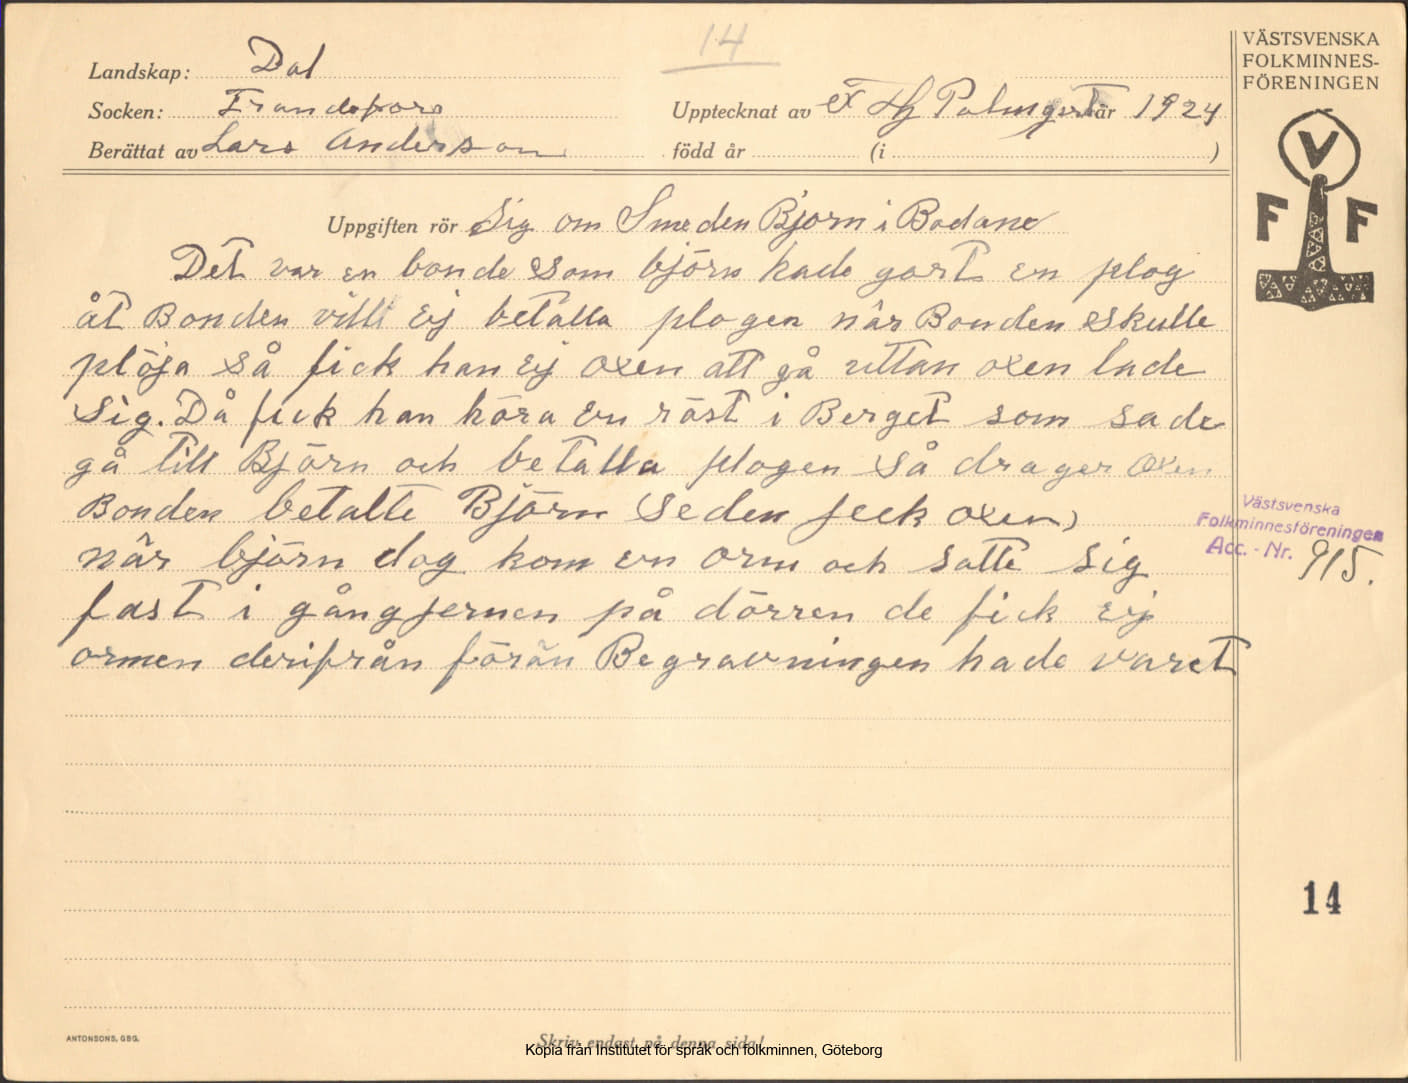 14
VÄSTSVENSKA
FOLKMINNES-
FÖRENINGEN
Landskap: Dal
Socken: Frandefors
Upptecknat av Hj Palmqvist år 1924
Berättat av Lars Anderson
född år (i )
V
F F
Uppgiften rör Sig om Smeden Bjorn i Bodane
Det var en bonde som björn hade gort en plog
åt Bonden ville Ej betalla plogen när Bonden skulle
plöja så fick han Ej oxen att gå uttan oxen lade
sig. Då fick han höra En röst i Berget som sade
gå till Björn och betalla plogen så drager oxen
Bonden betalte Björn seden jeck oxen)
när björn dog kom en orm och satte sig
fast i gångjernen på dörren de fick Ej
ormen derifrån förän Begravningen hade varet
Västsvenska
Folkminnesföreningen
Acc. - Nr. 915.
14
ANTONSONS, GBG.
Skriv endast på denna sida!
Kopia från Institutet för språk och folkminnen, Göteborg